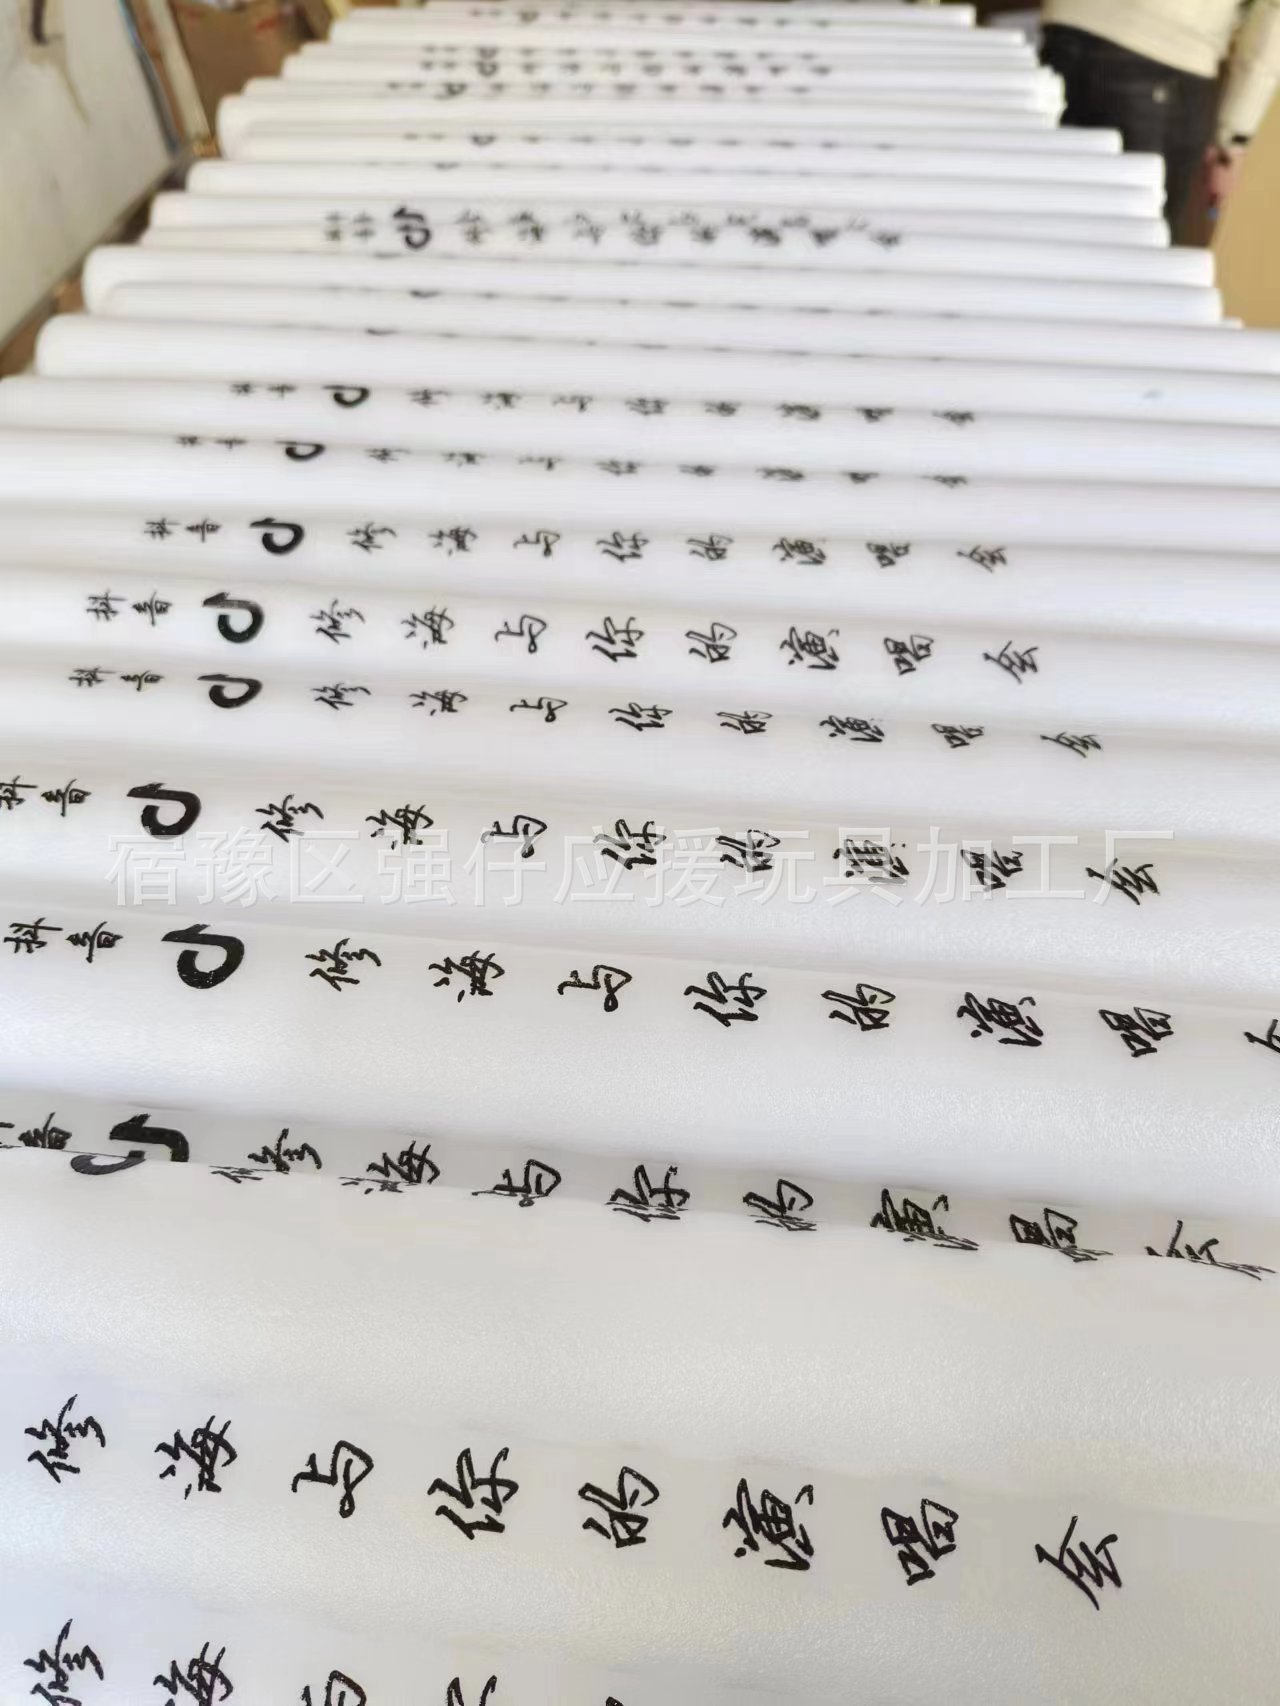 抖音 修海与你的演唱会
抖音 修海与你的演唱会
抖音 修海与你的演唱会
抖音 修海与你的演唱会
抖音 修海与你的演唱会
抖音 修海与你的演唱会
抖音 修海与你的演唱会
宿豫区强仔应援玩具加工厂
抖音 修海与你的演唱会
音 修海与你的演唱会
修海与你的演唱会
修海与